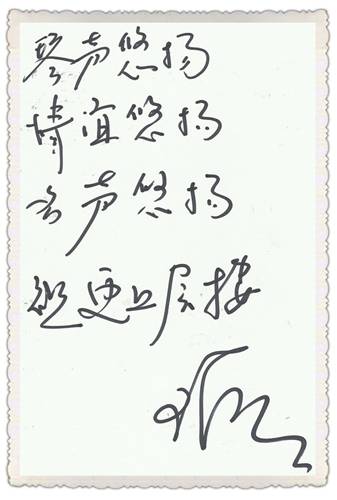 琴声悠扬
情谊悠扬
名声悠扬
更上层楼